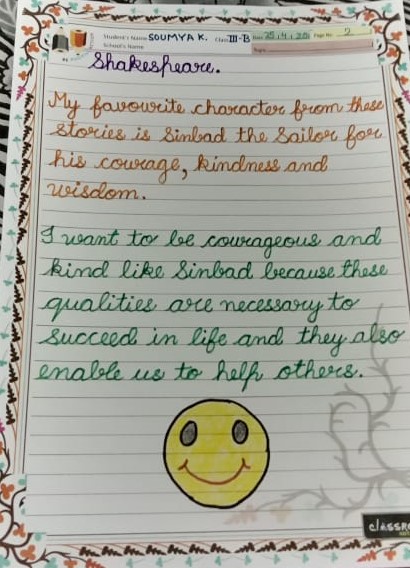 Student's Name SOUMYA K. Class III-B Date 25.4.20 Page No. 2
School's Name
Shakespeare.
My favourite character from these
stories is Sinbad the Sailor for
his courage, kindness and
wisdom.
I want to be courageous and
kind like Sinbad because these
qualities are necessary to
succeed in life and they also
enable us to help others.